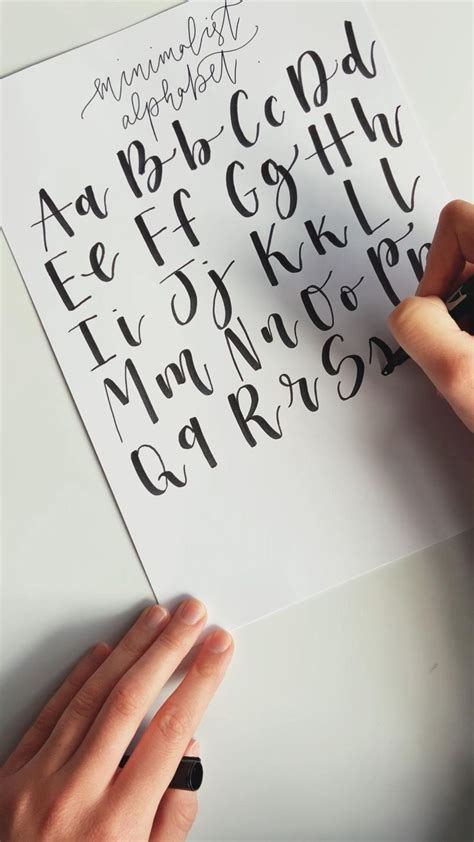 minimalist
alphabet.
Aa Bb Cc Dd
Ee Ff Gg Hh
Ii Jj Kk Ll
Mm Nn Oo Pp
Qq Rr Ss